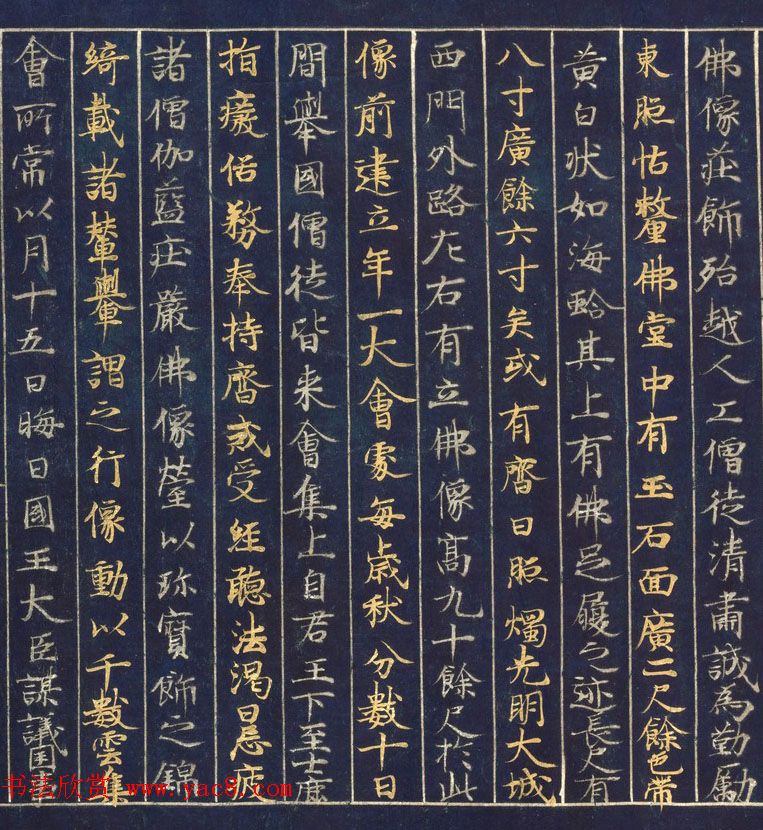 佛像莊飾殆越人工僧徒清肅誠為勤勵
東照怙釐佛堂中有玉石面廣二尺餘色帶
黃白狀如海蛤其上有佛足履之迹長尺有
八寸廣餘六寸矣或有齋日照燭光明大城
西門外路左右有立佛像高九十餘尺於此
像前建立年一大會處每歲秋分數十日
間舉國僧徒皆来會集上自君王下至士庶
指癈俗務奉持齋戒受經聽法渴日忘疲
諸僧伽藍莊嚴佛像瑩以珎寶飾之錦
綺載諸輦輿謂之行像動以千數雲集
會所常以月十五日晦日國王大臣謀議國
书法欣赏 www.yac8.com